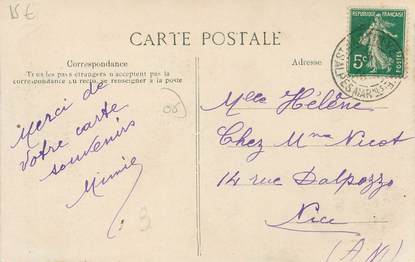 15 €
CARTE POSTALE
Correspondance
Tous les pays étrangers n'acceptent pas la
correspondance au recto. se renseigner à la poste
Adresse
5c
POSTES
ALPES-MAR
06
Merci de
votre carte
souvenirs
Mimie
Mlle Hélène
Chez Mme Nicot
14 rue Dalpozzo
Nice
(A M)
3